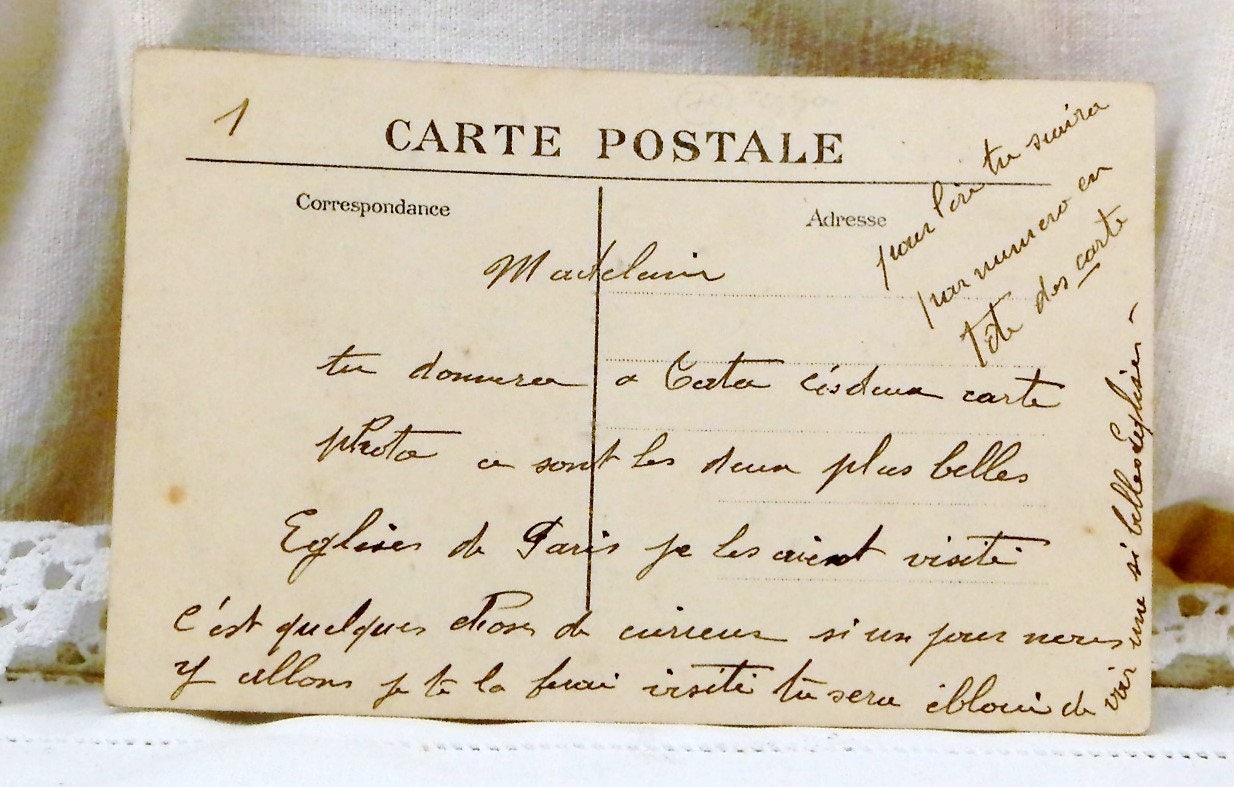 1
CARTE POSTALE
Correspondance
Adresse
pour lire tu suivra
par numero en
tête des carte
Madelain
tu donnerea a Tata cés deux carte
photo ce sont les deux plus belles
Eglises de Paris je les visité
c'est quelques choses de curieux si un jour nous
y allons je te la ferai visité tu sera ébloui de
voir une si belles Eglises -